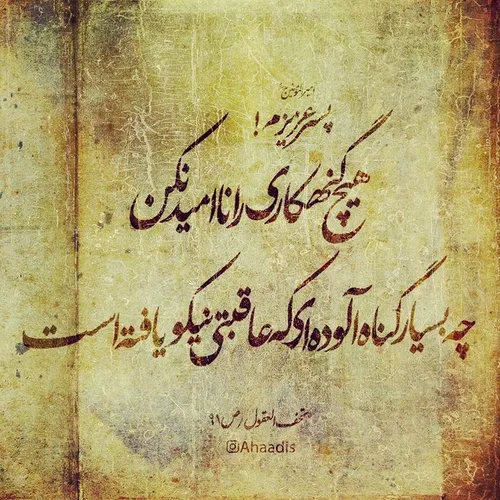 امیرالمؤمنین
پسر عزیزم!
هیچ گنهکاری را ناامید نکن
چه بسیار گناه آلوده ای که عاقبتی نیکو یافته است
تحف العقول رص ۹۱
@Ahaadis